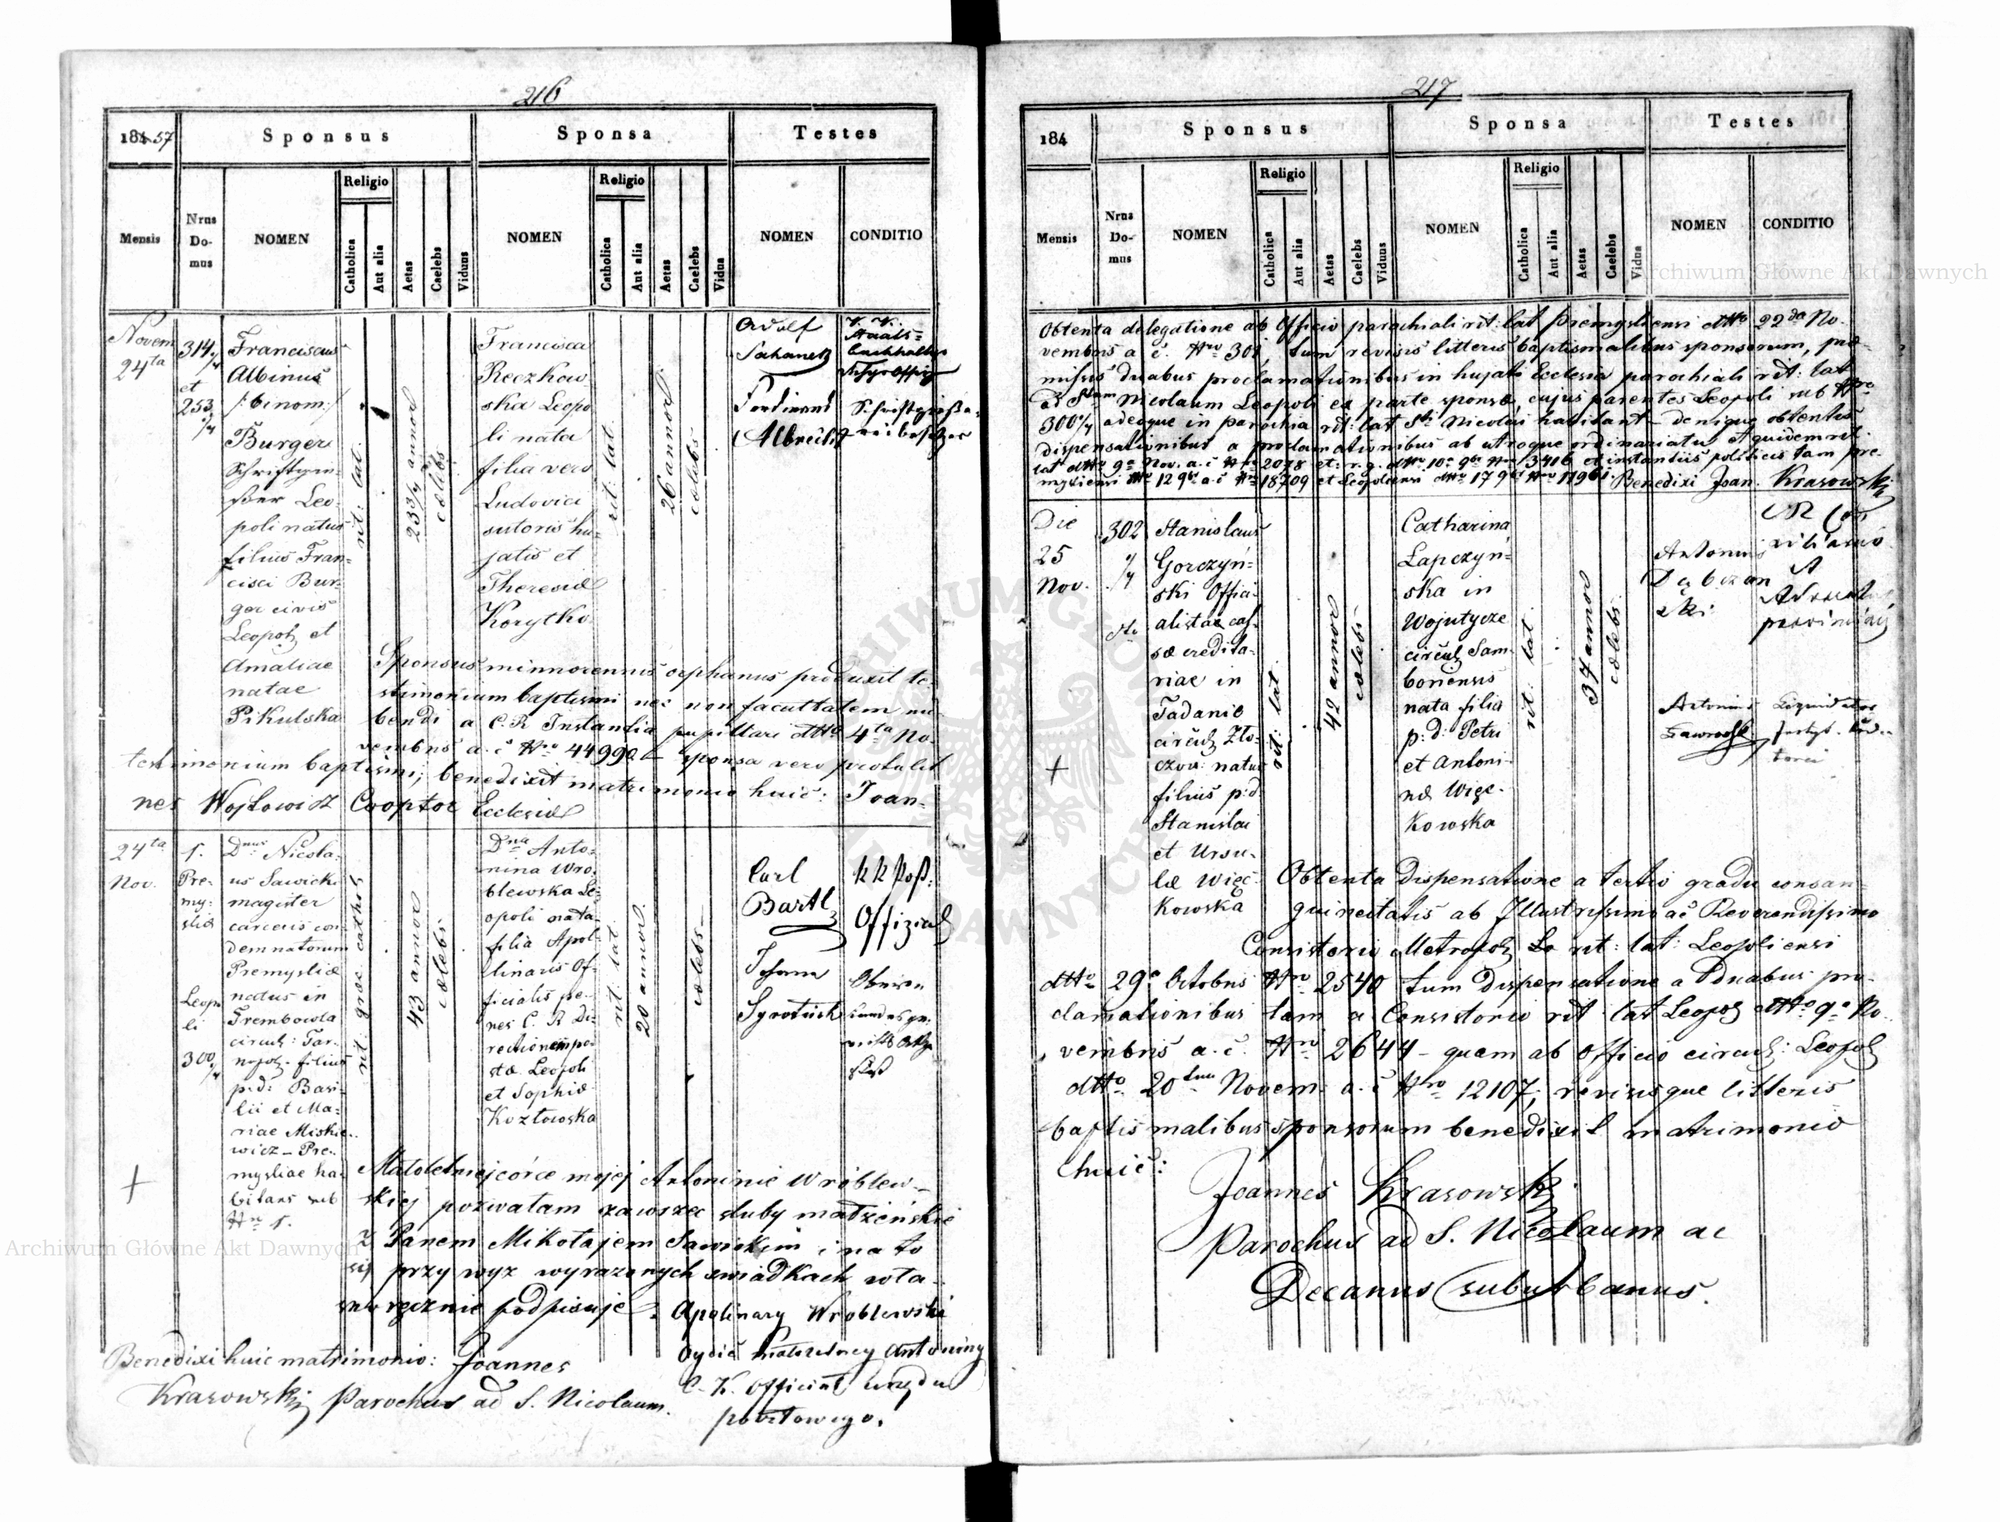 216
184 57
Sponsus
Sponsa
Testes
Mensis
Nrus Domus
NOMEN
Religio
Catholica
Aut alia
Aetas
Caelebs
Viduus
NOMEN
Religio
Catholica
Aut alia
Aetas
Caelebs
Vidua
NOMEN
CONDITIO
Novem
24ta
314 2/4
et
253 2/4
Franciscus
Albinus
/: binom:/
Burger
Schriftgie-
ßer Leo-
poli natus
filius Fran-
cisci Bur-
ger civis
Leopol et
Amaliae
natae
Pikulska
rit: lat.
23 3/4 annor
cœlebs
Francisca
Reczkow
ska Leopo
li nata
filia vero
Ludovici
sutoris hu-
jatis et
Theresiæ
Korytko
rit: lat.
26 annor
cœlebs
Adolf
Ferdinand
Albrecht
K. K.
Staats-
buchhaltgs
Sponsus minnorennis orphanus produxit te-
stimonium baptismi nec non facultatem nu-
bendi a C. R. Instantia pupillari dtto 4ta No-
vembris a. c. Nro 44992 sponsa vero protulit
testimonium baptismi; benedixit matrimonio huic: Joan-
nes Wojtowicz Cooptor Ecclesiæ
24ta
Nov.
1.
Pre-
my-
sliæ
Leopo
li
300 2/4
Dnus Nicola-
us Sawicki
magister
carceris con
demnatorum
Premysliæ
natus in
Trembowla
circul: Tar-
nopol. filius
p:d: Basi-
lii et Ma-
riae Miskie-
wicz - Pre-
mysliae ha-
bitans sub
Nro 1.
rit græc cathol
43 annor
cœlebs
Dna Anto-
nina Wro-
blewska Le-
opoli nata
filia Apol-
linaris Of-
ficialis pe-
nes C. R. Di-
rectionem po-
stæ Leopoli
et Sophiæ
Kozłowska
rit: lat.
20 annor
cœlebs
Carl
Bartl
kk Post:
Offizial
Johann
Syrotiuch
Małoletniej córce mojej Antoninie Wróblew-
skiej pozwalam zawrzeć śluby małżeńskie
z Panem Mikołajem Sawickim i na to
się przy wyż wyrażonych świadkach wła-
snoręcznie podpisuję. Apolinary Wróblewski
Oyciec małoletney Antoniny
C. K. Officiał urzędu
pocztowego.
Benedixi huic matrimonio: Joannes
Krasowski Parochus ad S. Nicolaum.
217
184
Sponsus
Sponsa
Testes
Mensis
Nrus Domus
NOMEN
Religio
Catholica
Aut alia
Aetas
Caelebs
Viduus
NOMEN
Religio
Catholica
Aut alia
Aetas
Caelebs
Vidua
NOMEN
CONDITIO
Obtenta delegatione ab Officio parochiali rit: lat Premysliensi dtto 22da No-
vembris a. c. Nro 301, tum revisis litteris baptismalibus sponsorum, præ-
missis duabus proclamationibus in hujati Ecclesia parochiali rit: lat
ad Stum Nicolaum Leopoli ex parte sponsæ, cujus parentes Leopoli sub Nro
300 2/4 adeoque in parochia rit: lat Sti Nicolai habitant - denique obtentis
dispensationibus a proclamationibus ab utroque ordinariatu et quidem rit
lat dtto 9a Nov. a. c. Nro 2078 et r. g. dtto 10a 9br Nro 3416 et instantiis politicis tam Pre-
mysliensi dtto 12 9br a. c. Nro 18209 et Leopoliensi dtto 17 9br Nro 11961. Benedixi Joan. Krasowski
Die
25
Nov.
302
2/4
Stanislaus
Gorczyń-
ski Offici-
alista cas-
sæ credita-
riae in
Tadanie
circul Zło-
czov: natus
filius p:d.
Stanislai
et Ursu-
læ Więc-
kowska
rit: lat.
42 annor
cœlebs
Catharina
Łapczyń-
ska in
Wojutycze
circul Sam-
boriensis
nata filia
p: d: Petri
et Antoni-
næ Więc-
kowska
rit: lat.
37 annor
cœlebs
Antonius
Antonius
Gawroński
Liquidator
Obtenta Dispensatione a tertio gradu consan-
guineitatis ab Illustrissimo ac Reverendissimo
Consistorio Metropol. Lo rit: lat: Leopoliensi
dtto 29a Octobris Nro 2540 tum dispensatione a Duabus pro-
clamationibus tam a Consistorio rit: lat Leopol dtto 9a No-
vembris a. c. Nro 2644 - quam ab officio circul: Leopol
dtto 20tum Novem: a. c. Nro 12107; revisisque litteris
baptismalibus sponsorum benedixit matrimonio
huic:
Joannes Krasowski
Parochus ad S. Nicolaum ac
Decanus suburbanus.
Archiwum Główne Akt Dawnych
Archiwum Główne Akt Dawnych
ARCHIWUM GŁÓWNE AKT DAWNYCH